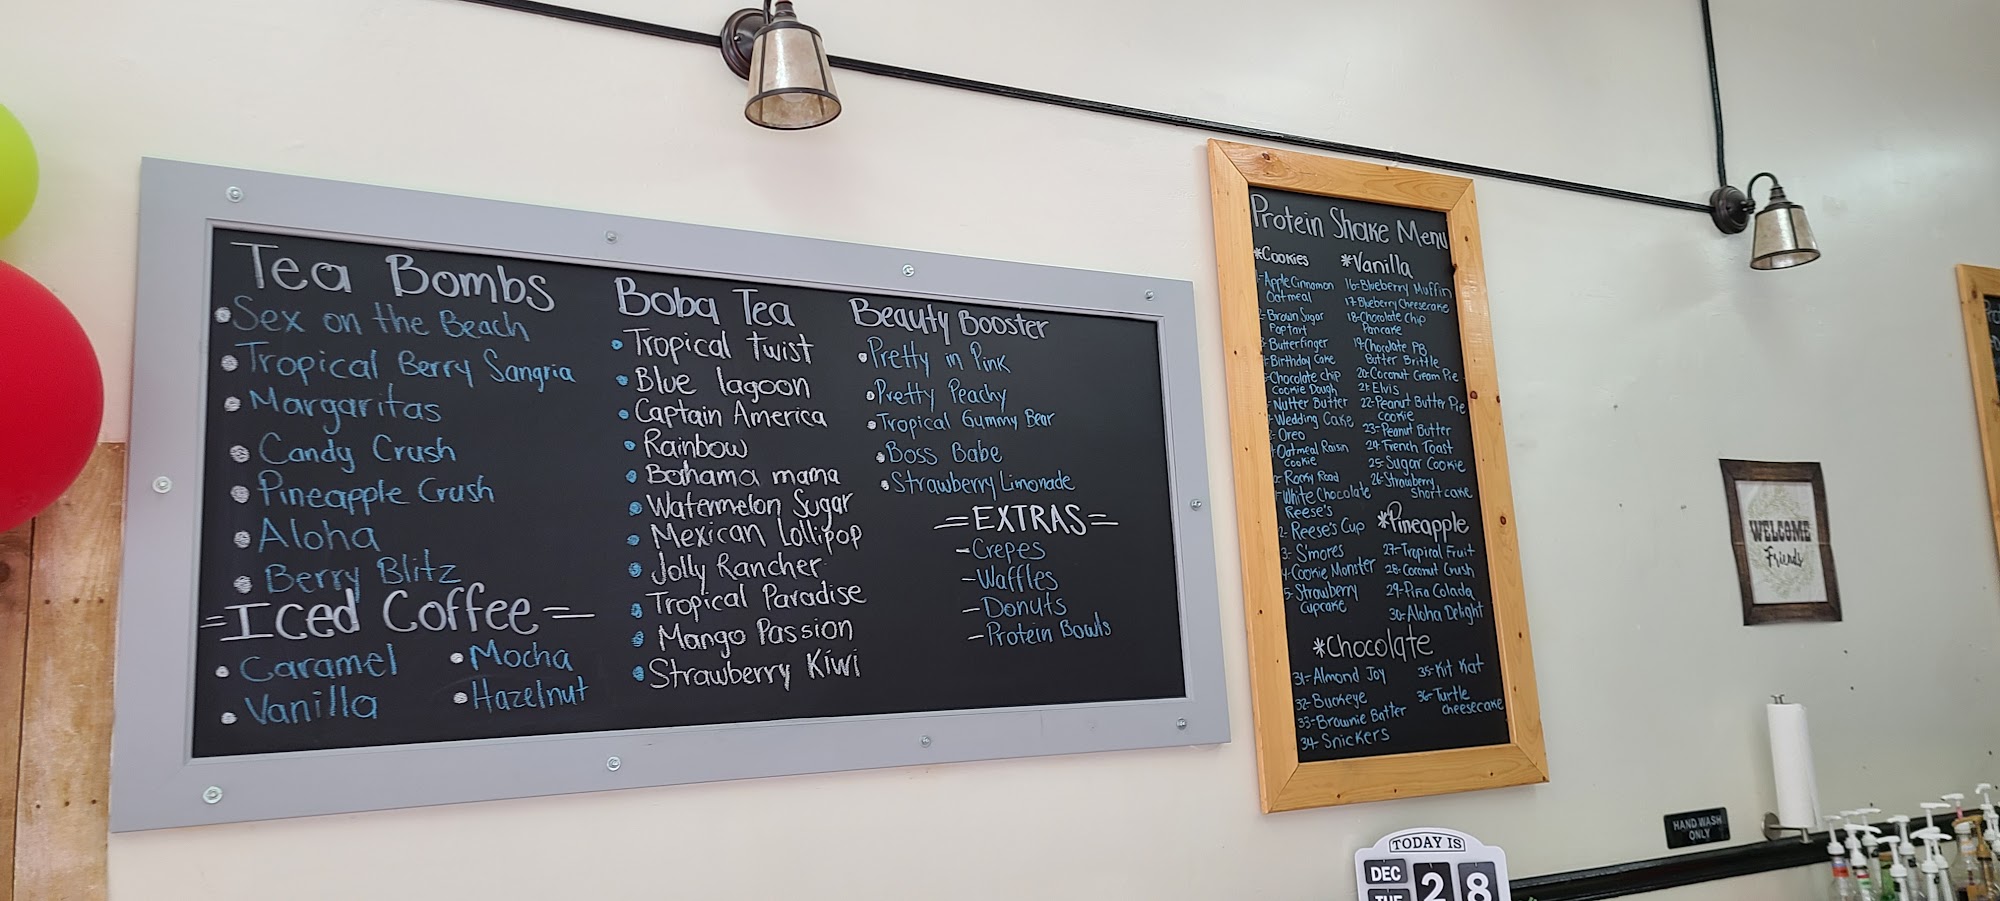 Tea Bombs
Sex on the Beach
Tropical Berry Sangria
Margaritas
Candy Crush
Pineapple Crush
Aloha
Berry Blitz
=Iced Coffee=
Caramel
Vanilla
Mocha
Hazelnut
Boba Tea
Tropical twist
Blue lagoon
Captain America
Rainbow
Bahama mama
Watermelon Sugar
Mexican Lollipop
Jolly Rancher
Tropical Paradise
Mango Passion
Strawberry Kiwi
Beauty Booster
Pretty in Pink
Pretty Peachy
Tropical Gummy Bear
Boss Babe
Strawberry Limonade
=EXTRAS=
-Crepes
-Waffles
-Donuts
-Protein Bowls
Protein Shake Menu
*Cookies
Apple Cinnamon
Oatmeal
Brown Sugar
Poptart
Butterfinger
Birthday Cake
Chocolate chip
Cookie Dough
Nutter Butter
Wedding Cake
Oreo
Oatmeal Raisin
Cookie
Rocky Road
White Chocolate
Reese's
2-Reese's Cup
3-S'mores
4-Cookie Monster
5-Strawberry
Cupcake
*Vanilla
16-Blueberry Muffin
17-Blueberry Cheesecake
18-Chocolate Chip
Pancake
19-Chocolate PB
Butter Brittle
20-Coconut Cream Pie
21-Elvis
22-Peanut Butter Pie
Cookie
23-Peanut Butter
24-French Toast
25-Sugar Cookie
26-Strawberry
Shortcake
*Pineapple
27-Tropical Fruit
28-Coconut Crush
29-Pina Colada
30-Aloha Delight
*Chocolate
31-Almond Joy
32-Buckeye
33-Brownie Batter
34-Snickers
35-Kit Kat
36-Turtle
Cheesecake
WELCOME
Friends
HAND WASH
ONLY
TODAY IS
DEC
TUE
28